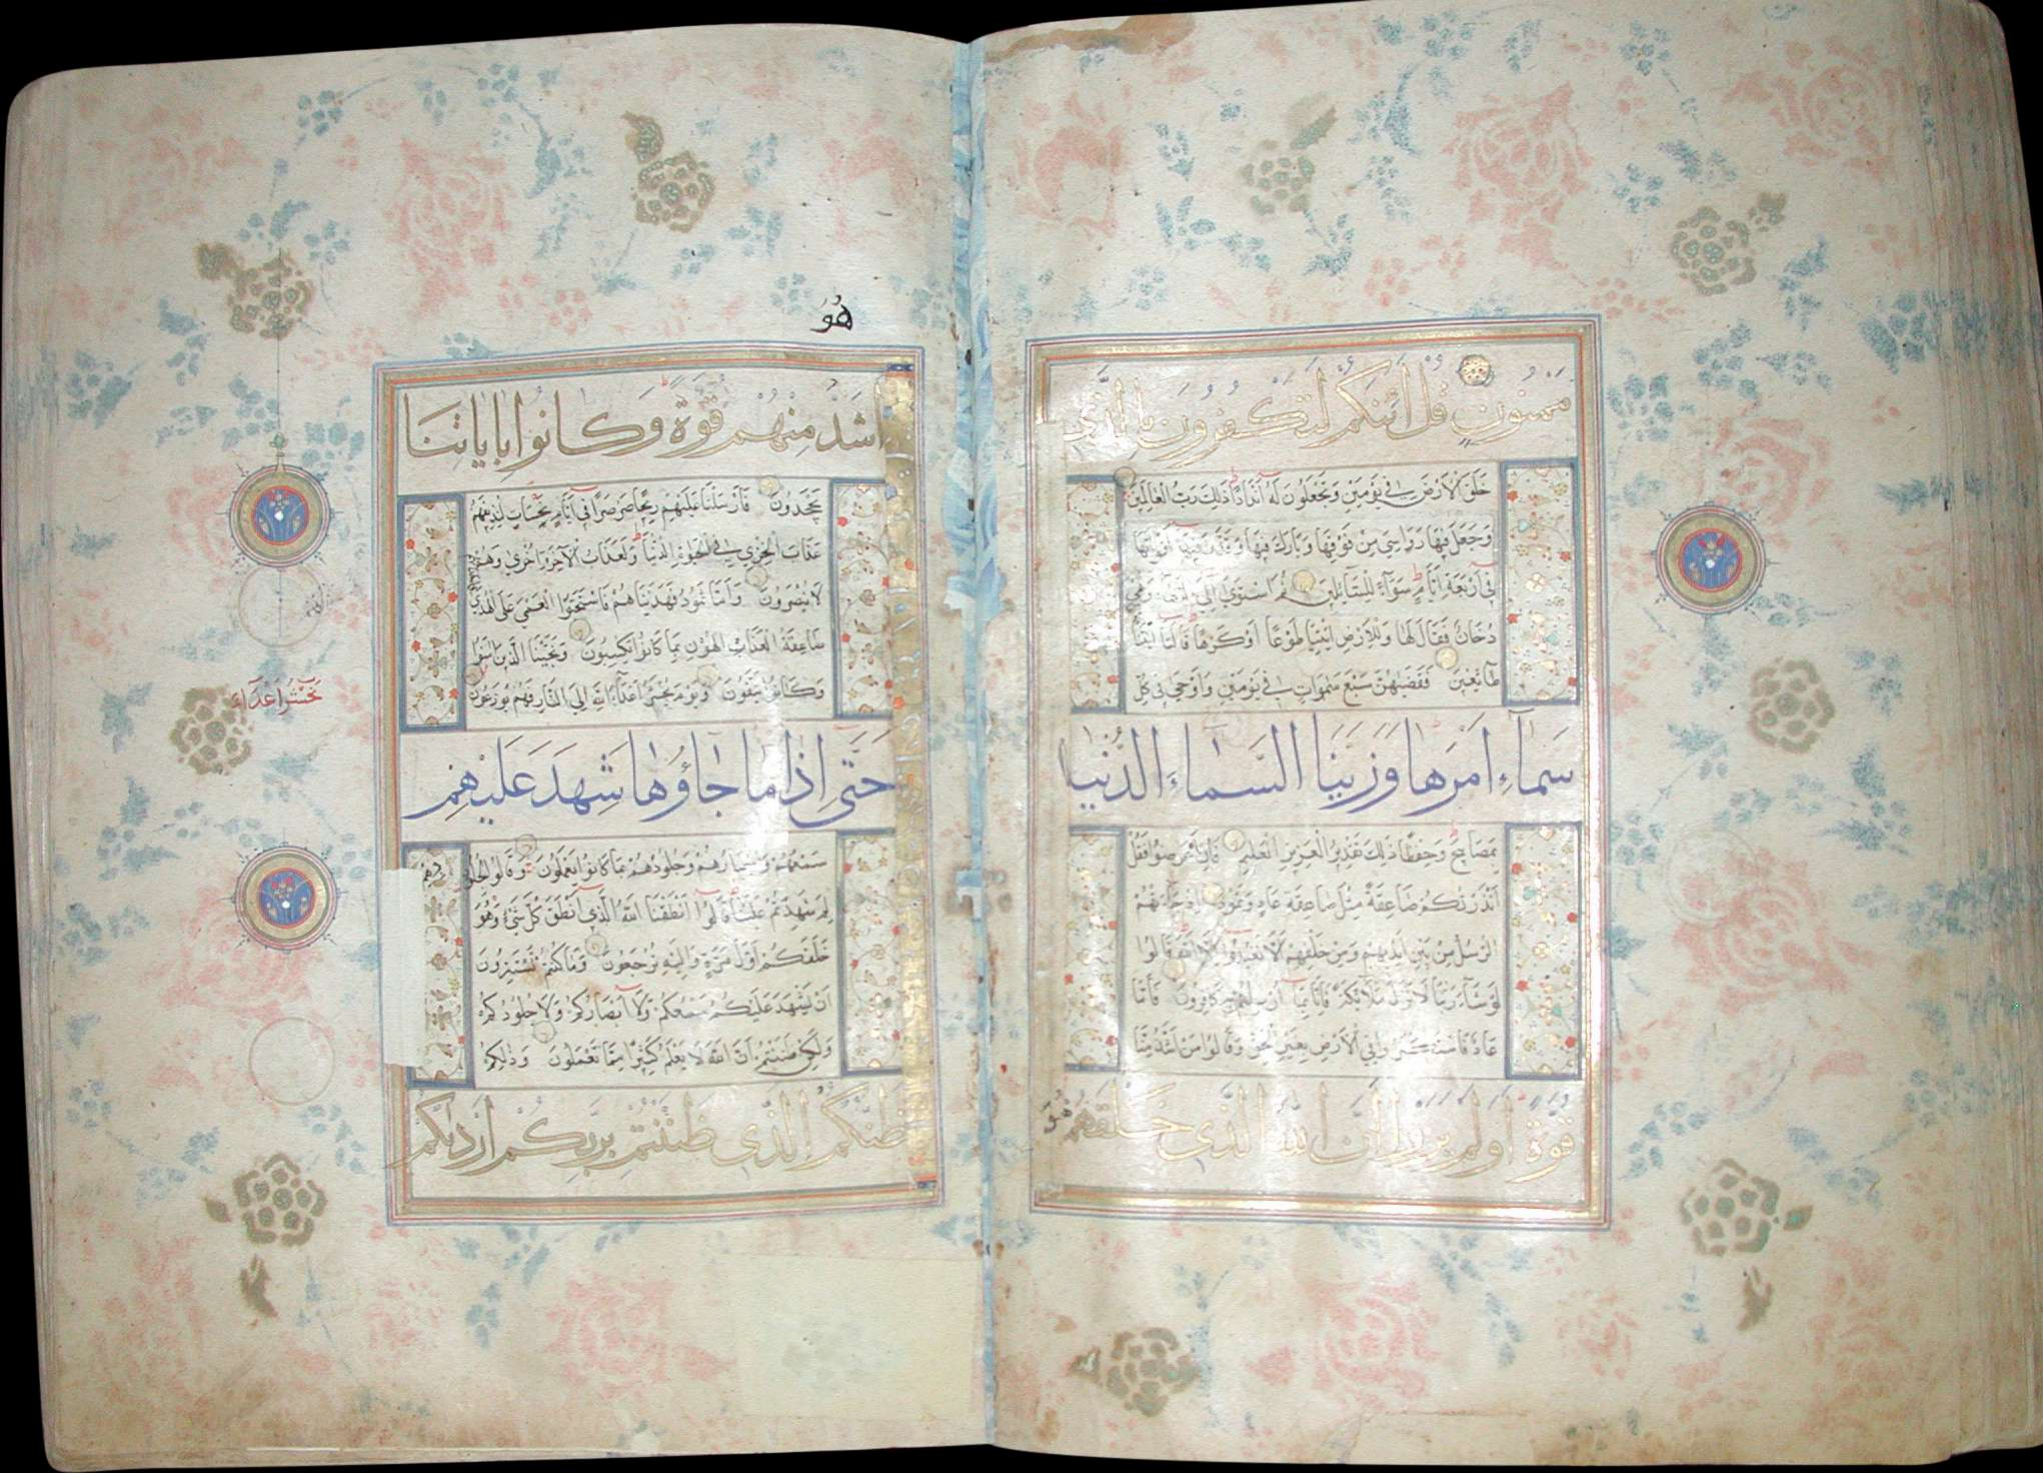 ممنون قل ائنكم لتكفرون بالذي
خلق الارض في يومين وتجعلون له اندادا ذلك رب العالمين
وجعل فيها رواسي من فوقها وبارك فيها وقدر فيها اقواتها
في اربعة ايام سواء للسائلين ثم استوى الى السماء وهي
دخان فقال لها وللارض ائتيا طوعا او كرها قالتا اتينا
طائعين فقضيهن سبع سموات في يومين واوحى في كل
سماء امرها وزينا السماء الدنيا
بمصابيح وحفظا ذلك تقدير العزيز العليم فان اعرضوا فقل
انذرتكم صاعقة مثل صاعقة عاد وثمود اذ جاءتهم
الرسل من بين ايديهم ومن خلفهم الا تعبدوا الا الله قالوا
لو شاء ربنا لانزل ملائكة فانا بما ارسلتم به كافرون فاما
عاد فاستكبروا في الارض بغير الحق وقالوا من اشد منا
قوة اولم يروا ان الله الذي خلقهم
هو
هو
اشد منهم قوة وكانوا باياتنا
يجحدون فارسلنا عليهم ريحا صرصرا في ايام نحسات لنذيقهم
عذاب الخزي في الحيوة الدنيا ولعذاب الاخرة اخزى وهم
لا ينصرون واما ثمود فهديناهم فاستحبوا العمى على الهدى
صاعقة العذاب الهون بما كانوا يكسبون ونجينا الذين امنوا
وكانوا يتقون ويوم يحشر اعداء الله الى النار فهم يوزعون
نحشر اعداء
حتى اذا ما جاؤها شهد عليهم
سمعهم وابصارهم وجلودهم بما كانوا يعملون وقالوا لجلودهم
لم شهدتم علينا قالوا انطقنا الله الذي انطق كل شيء وهو
خلقكم اول مرة واليه ترجعون وما كنتم تستترون
ان يشهد عليكم سمعكم ولا ابصاركم ولا جلودكم
ولكن ظننتم ان الله لا يعلم كثيرا مما تعملون وذلكم
ظنكم الذي ظننتم بربكم ارديكم